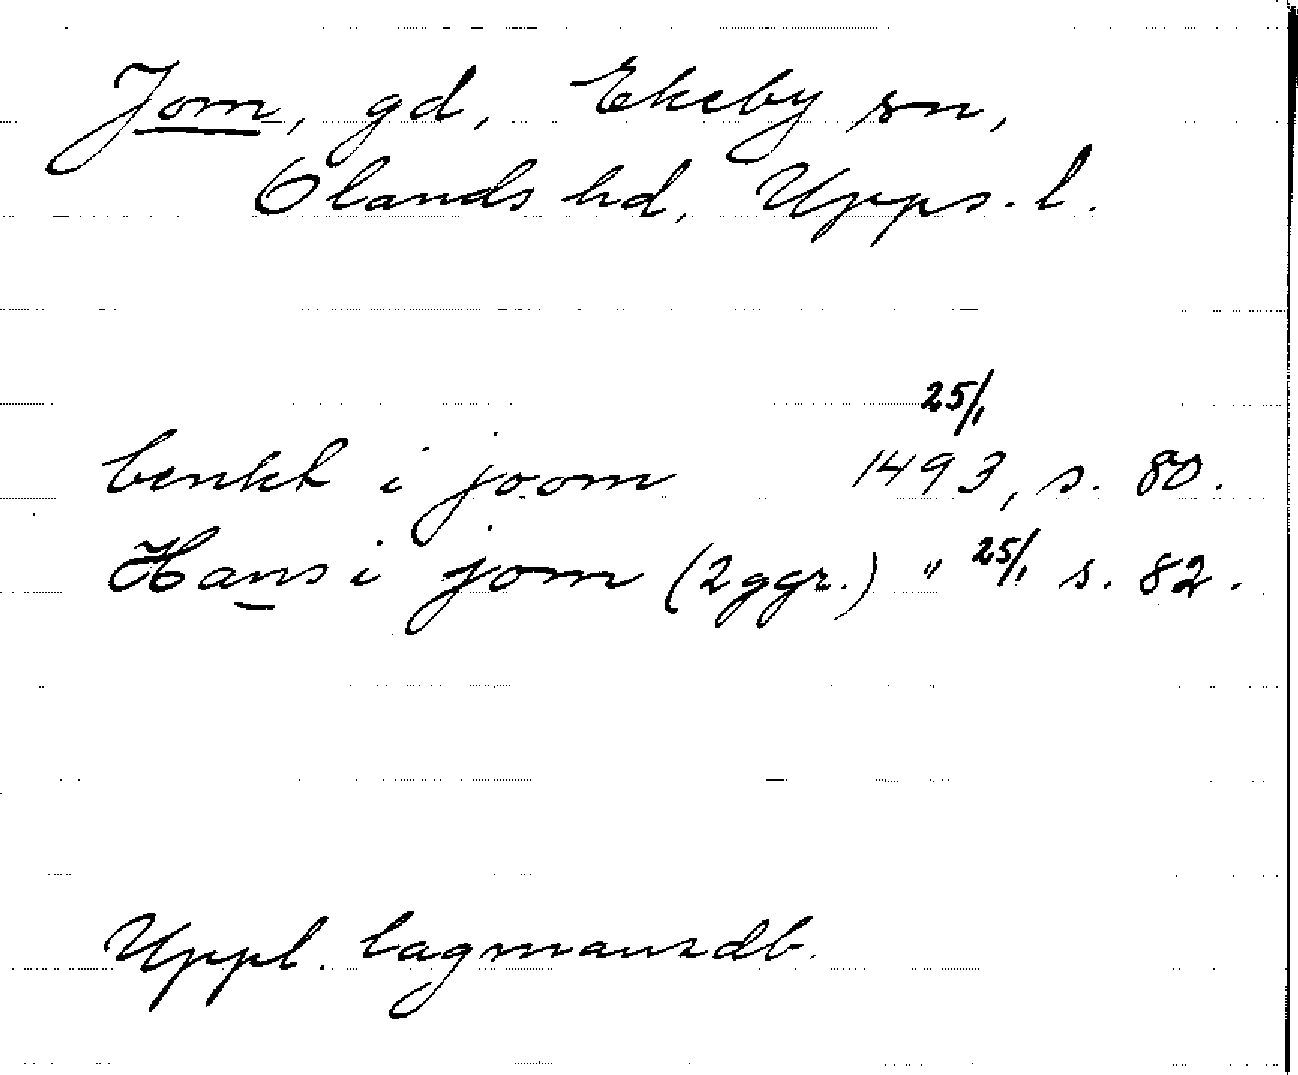 Jom, gd, Ekeby sn,
Olands hd, Upps. l.
benkt i joom 25/1 1493, s. 80.
Hans i jom (2ggr.) " 25/1 s. 82.
Uppl. lagmansdb.